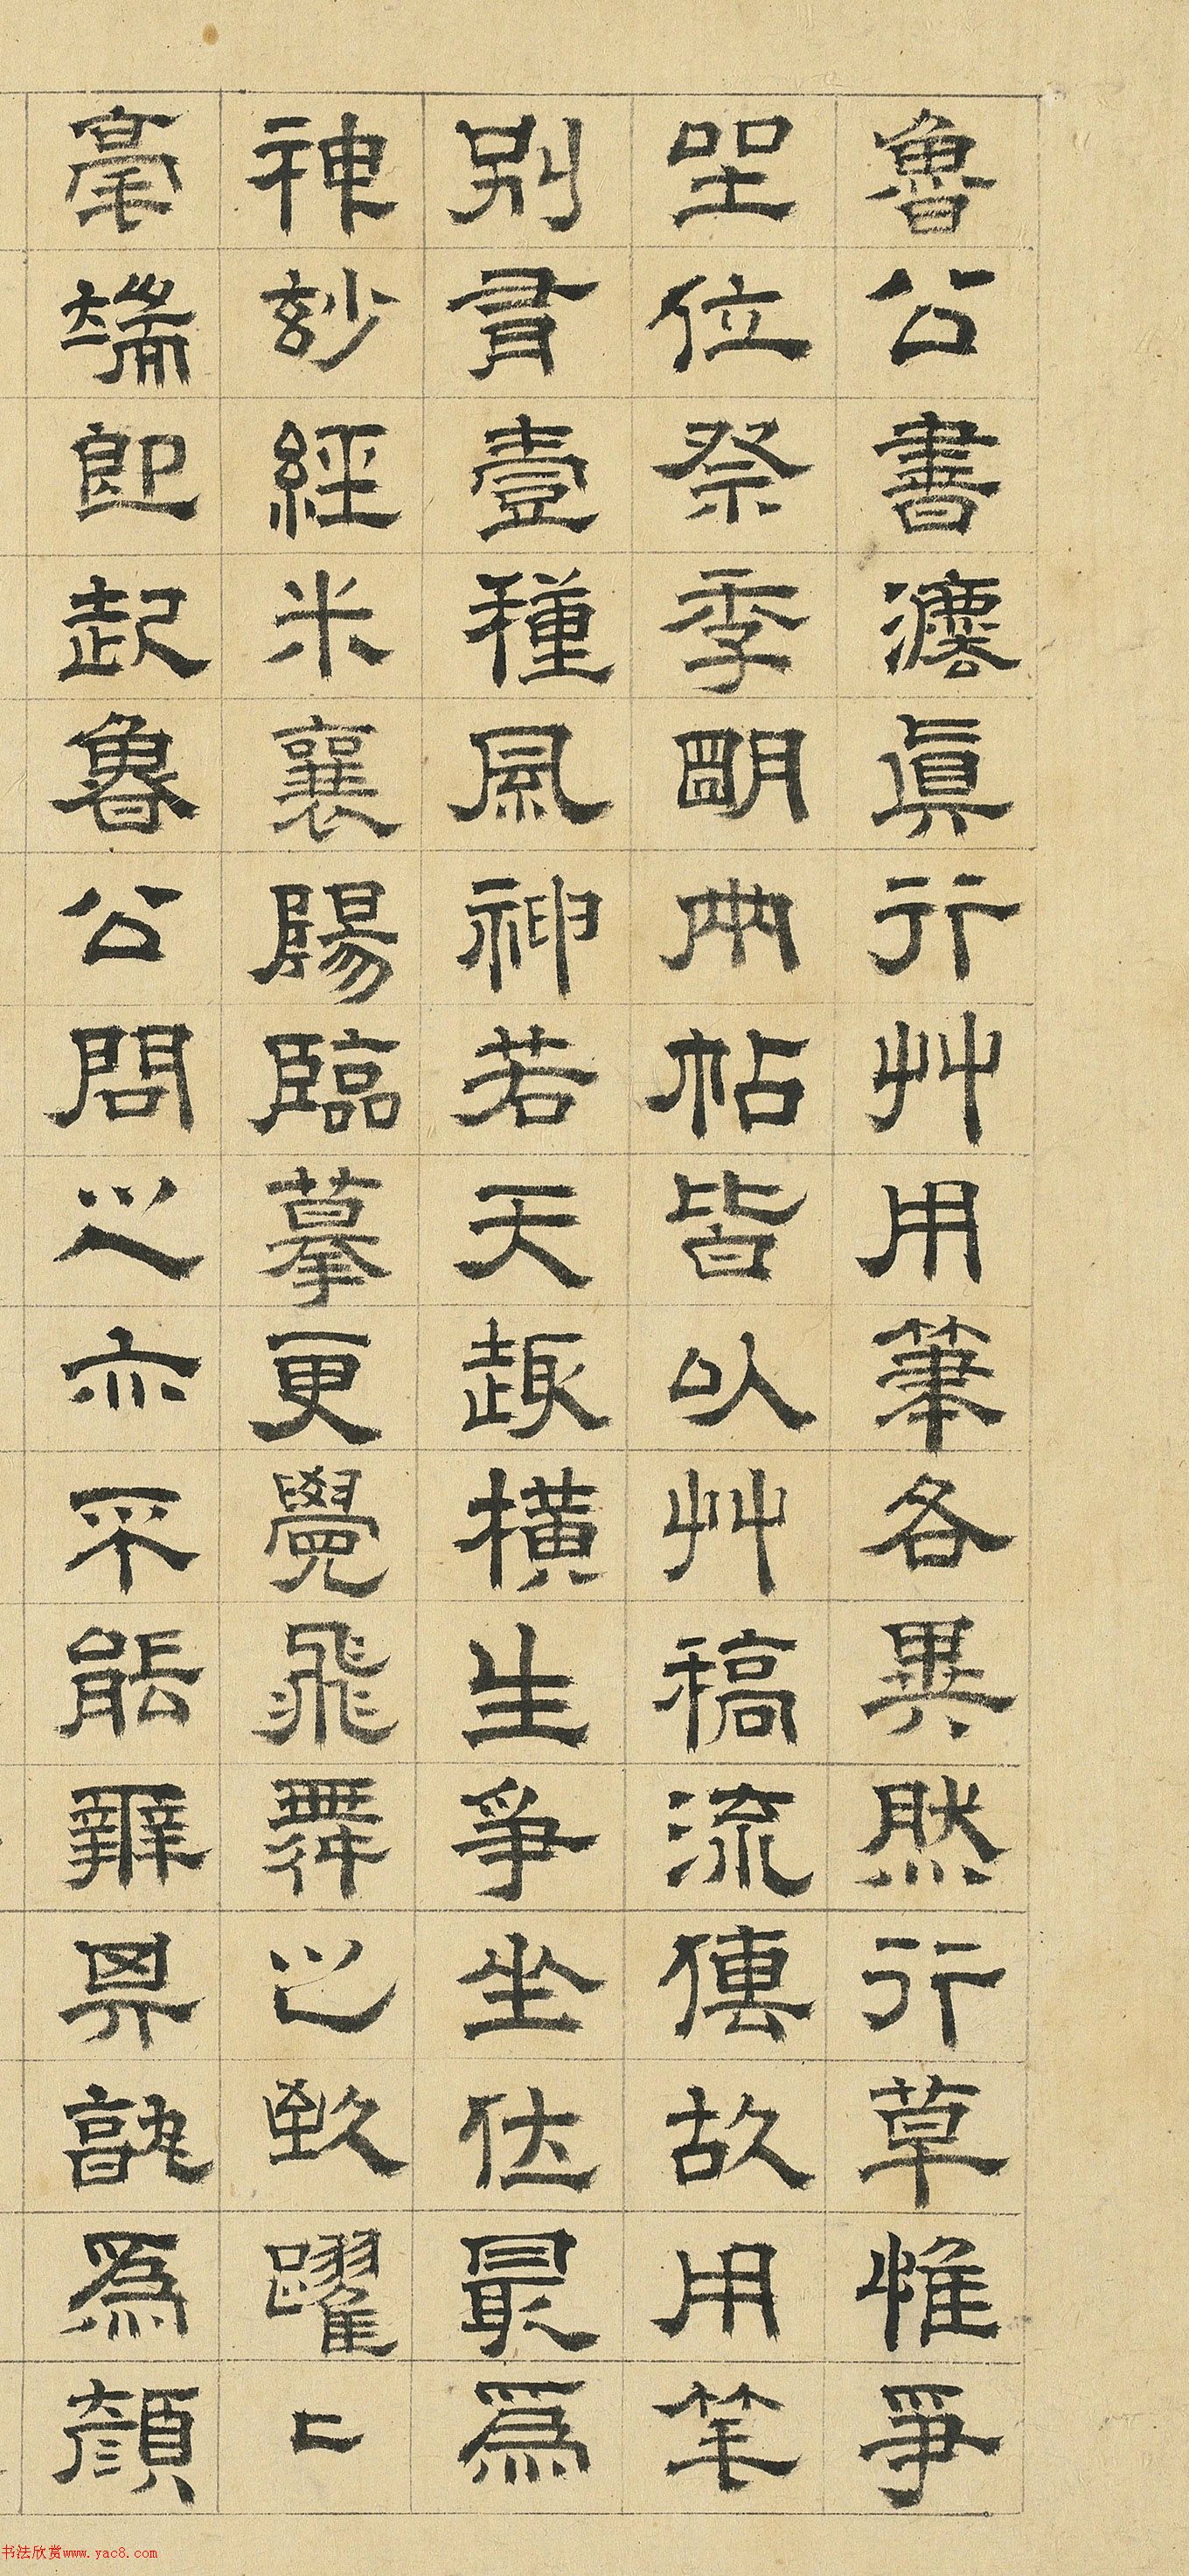 魯公書灋眞行艸用筆各異然行草惟爭
坐位祭季明兩帖皆以艸稿流傳故用笔
別有壹種風神若天趣橫生爭坐位最為
神玅經米襄陽臨摹更覺飛舞之致躍〻
毫端即起魯公問之亦不能辨其孰為顏
书法欣赏www.yac8.com